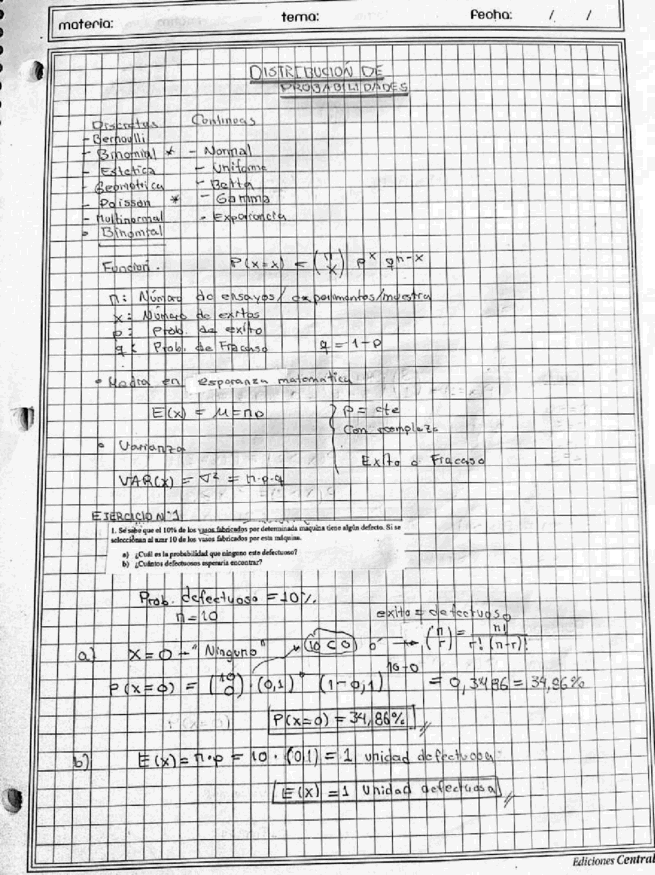 materia: tema: Fecha: / /
DISTRIBUCIÓN DE
PROBABILIDADES
Discretas Continuas
- Bernoulli
- Binomial * - Normal
- Estetica - Uniforme
- Geometrica - Betta
- Poisson * - Gamma
- Multinormal - Exponencia
• Binomial
Función. P(x=x) = (n x) p^x q^n-x
n: Número de ensayos / experimentos/muestra
x: Número de exitos
p: Prob. de exito
q: Prob. de Fracaso q = 1-p
• Madra en esperanza matematica
E(x) = μ = np } p = cte
Con reemplazo
• Varianza Exito o Fracaso
VAR(x) = ∇² = n.p.q
EJERCICIO N°1
1. Se sabe que el 10% de los vasos fabricados por determinada maquina tiene algún defecto. Si se
seleccionan al azar 10 de los vasos fabricados por esta máquina.
a) ¿Cuál es la probabilidad que ninguno este defectuoso?
b) ¿Cuántos defectuosos esperaría encontrar?
Prob. defectuoso = 10%
n = 10 exito = defectuoso
a) x = 0 → "Ninguno" (10 C 0) ó → (n r) = n! / r! (n-r)!
P(x=0) = (10 0) · (0,1)^0 (1-0,1)^10-0 = 0,3486 = 34,86%
P(x=0) = 34,86%
b) E(x) = n·p = 10 · (0,1) = 1 unidad defectuosa
E(x) = 1 Unidad defectuosa
Ediciones Central